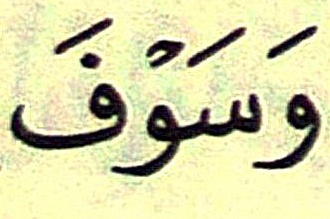 وَسَوْفَ